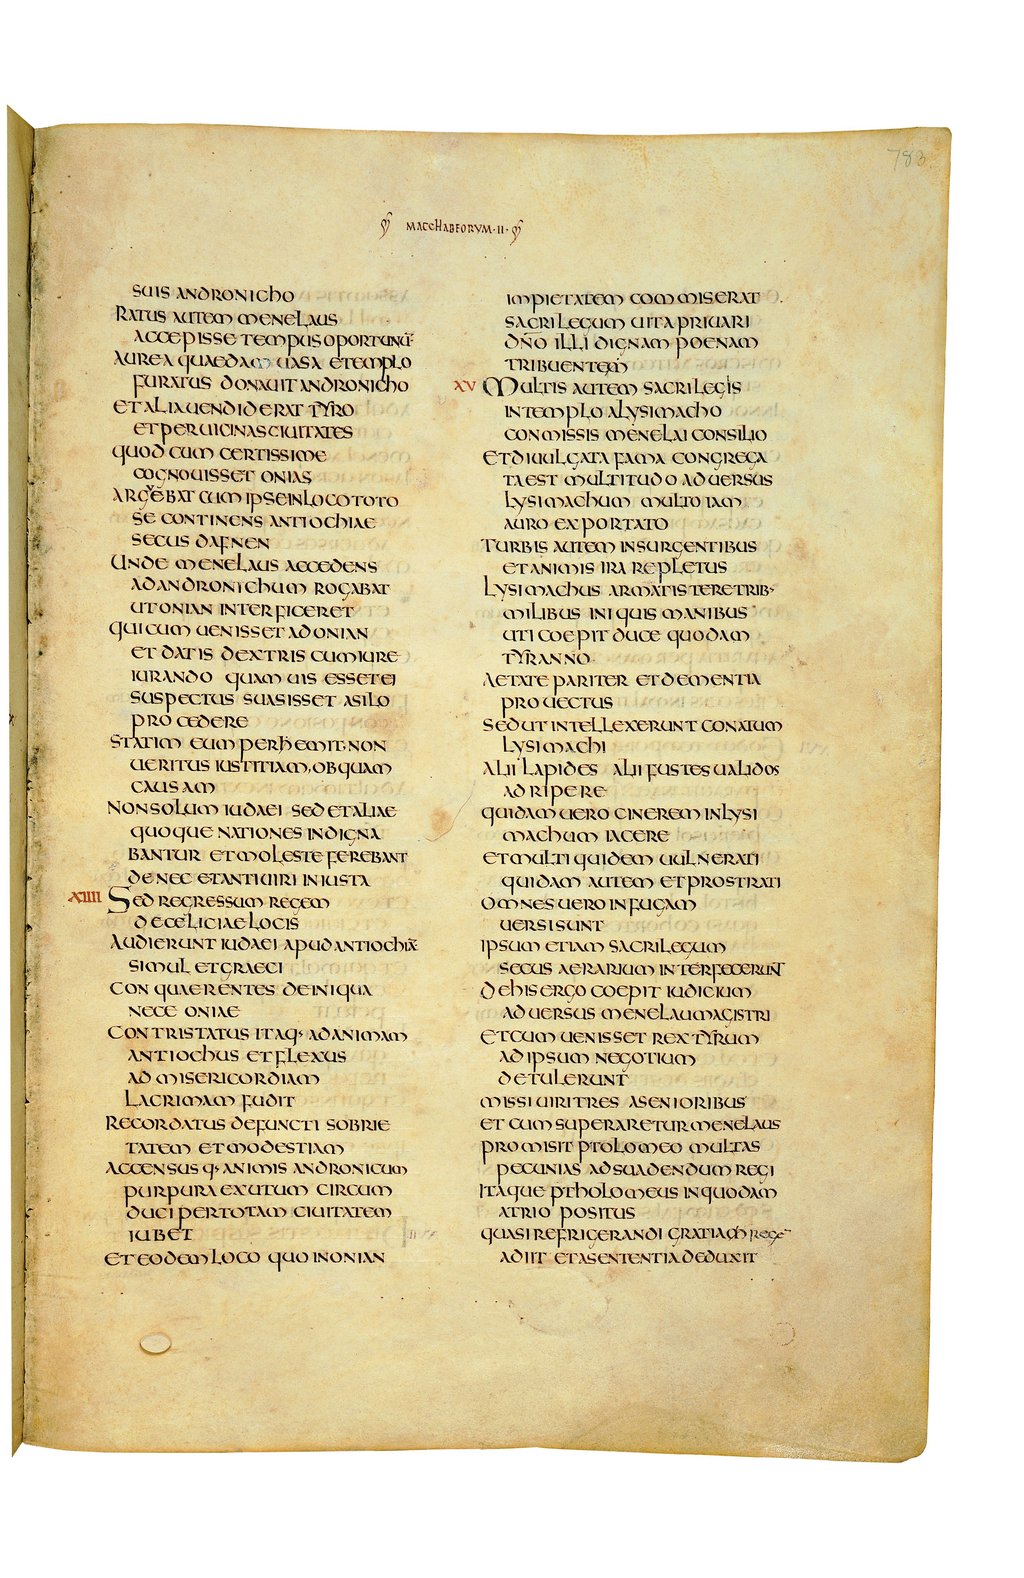 783
MACCHABEORVM · II ·
SUIS ANDRONICHO
RATUS AUTEM MENELAUS
ACCEPISSE TEMPUS OPORTUNŪ
AUREA QUAEDAM UASA E TEMPLO
FURATUS DONAUIT ANDRONICHO
ET ALIA UENDIDERAT TYRO
ET PER UICINAS CIUITATES
QUOD CUM CERTISSIME
COGNOUISSET ONIAS
ARGUEBAT CUM IPSE IN LOCO TOTO
SE CONTINENS ANTIOCHIAE
SECUS DAFNEN
UNDE MENELAUS ACCEDENS
AD ANDRONICHUM ROGABAT
UT ONIAN INTERFICERET
QUI CUM UENISSET AD ONIAN
ET DATIS DEXTRIS CUM IURE
IURANDO QUAMUIS ESSET EI
SUSPECTUS SUASISSET ASILO
PROCEDERE
STATIM EUM PERHEMIT· NON
UERITUS IUSTITIAM, OB QUAM
CAUSAM
NON SOLUM IUDAEI SED ET ALIAE
QUOQUE NATIONES INDIGNA
BANTUR ET MOLESTE FEREBANT
DE NEC E TANTI UIRI INIUSTA
XIIII SED REGRESSUM REGEM
DE CELICIAE LOCIS
AUDIERUNT IUDAEI APUD ANTIOCHIĀ
SIMUL ET GRAECI
CONQUAERENTES DE INIQUA
NECE ONIAE
CONTRISTATUS ITAQ· AD ANIMAM
ANTIOCHUS ET FLEXUS
AD MISERICORDIAM
LACRIMAM FUDIT
RECORDATUS DEFUNCTI SOBRIE
TATEM ET MODESTIAM
ACCENSUSQ· ANIMIS ANDRONICUM
PURPURA EXUTUM CIRCUM
DUCI PER TOTAM CIUITATEM
IUBET
ET EODEM LOCO QUO IN ONIAN
IMPIETATEM COMMISERAT
SACRILEGUM UITA PRIUARI
DÑO ILLI DIGNAM POENAM
TRIBUENTEM
XV MULTIS AUTEM SACRILEGIS
IN TEMPLO A LYSIMACHO
CONMISSIS MENELAI CONSILIO
ET DIUULGATA FAMA CONGREGA
TA EST MULTITUDO ADUERSUS
LYSIMACHUM MULTO IAM
AURO EXPORTATO
TURBIS AUTEM INSURGENTIBUS
ET ANIMIS IRA REPLETUS
LYSIMACHUS ARMATIS TERE TRIB·
MILIBUS INIQUIS MANIBUS
UTI COEPIT DUCE QUODAM
TYRANNO
AETATE PARITER ET DEMENTIA
PROUECTUS
SED UT INTELLEXERUNT CONATUM
LYSIMACHI
ALII LAPIDES ALII FUSTES UALIDOS
ADRIPERE
QUIDAM UERO CINEREM IN LYSI
MACHUM IACERE
ET MULTI QUIDEM UULNERATI
QUIDAM AUTEM ET PROSTRATI
OMNES UERO IN FUGAM
UERSI SUNT
IPSUM ETIAM SACRILEGUM
SECUS AERARIUM INTERFECERUNT
DE HIS ERGO COEPIT IUDICIUM
ADUERSUS MENELAUM AGISTRI
ET CUM UENISSET REX TYRUM
AD IPSUM NEGOTIUM
DETULERUNT
MISSI UIRI TRES A SENIORIBUS
ET CUM SUPERARETUR MENELAUS
PROMISIT PTOLOMEO MULTAS
PECUNIAS AD SUADENDUM REGI
ITAQUE PTHOLOMEUS IN QUODAM
ATRIO POSITUS
QUASI REFRIGERANDI GRATIAM REGE
ADIIT ET A SENTENTIA DEDUXIT